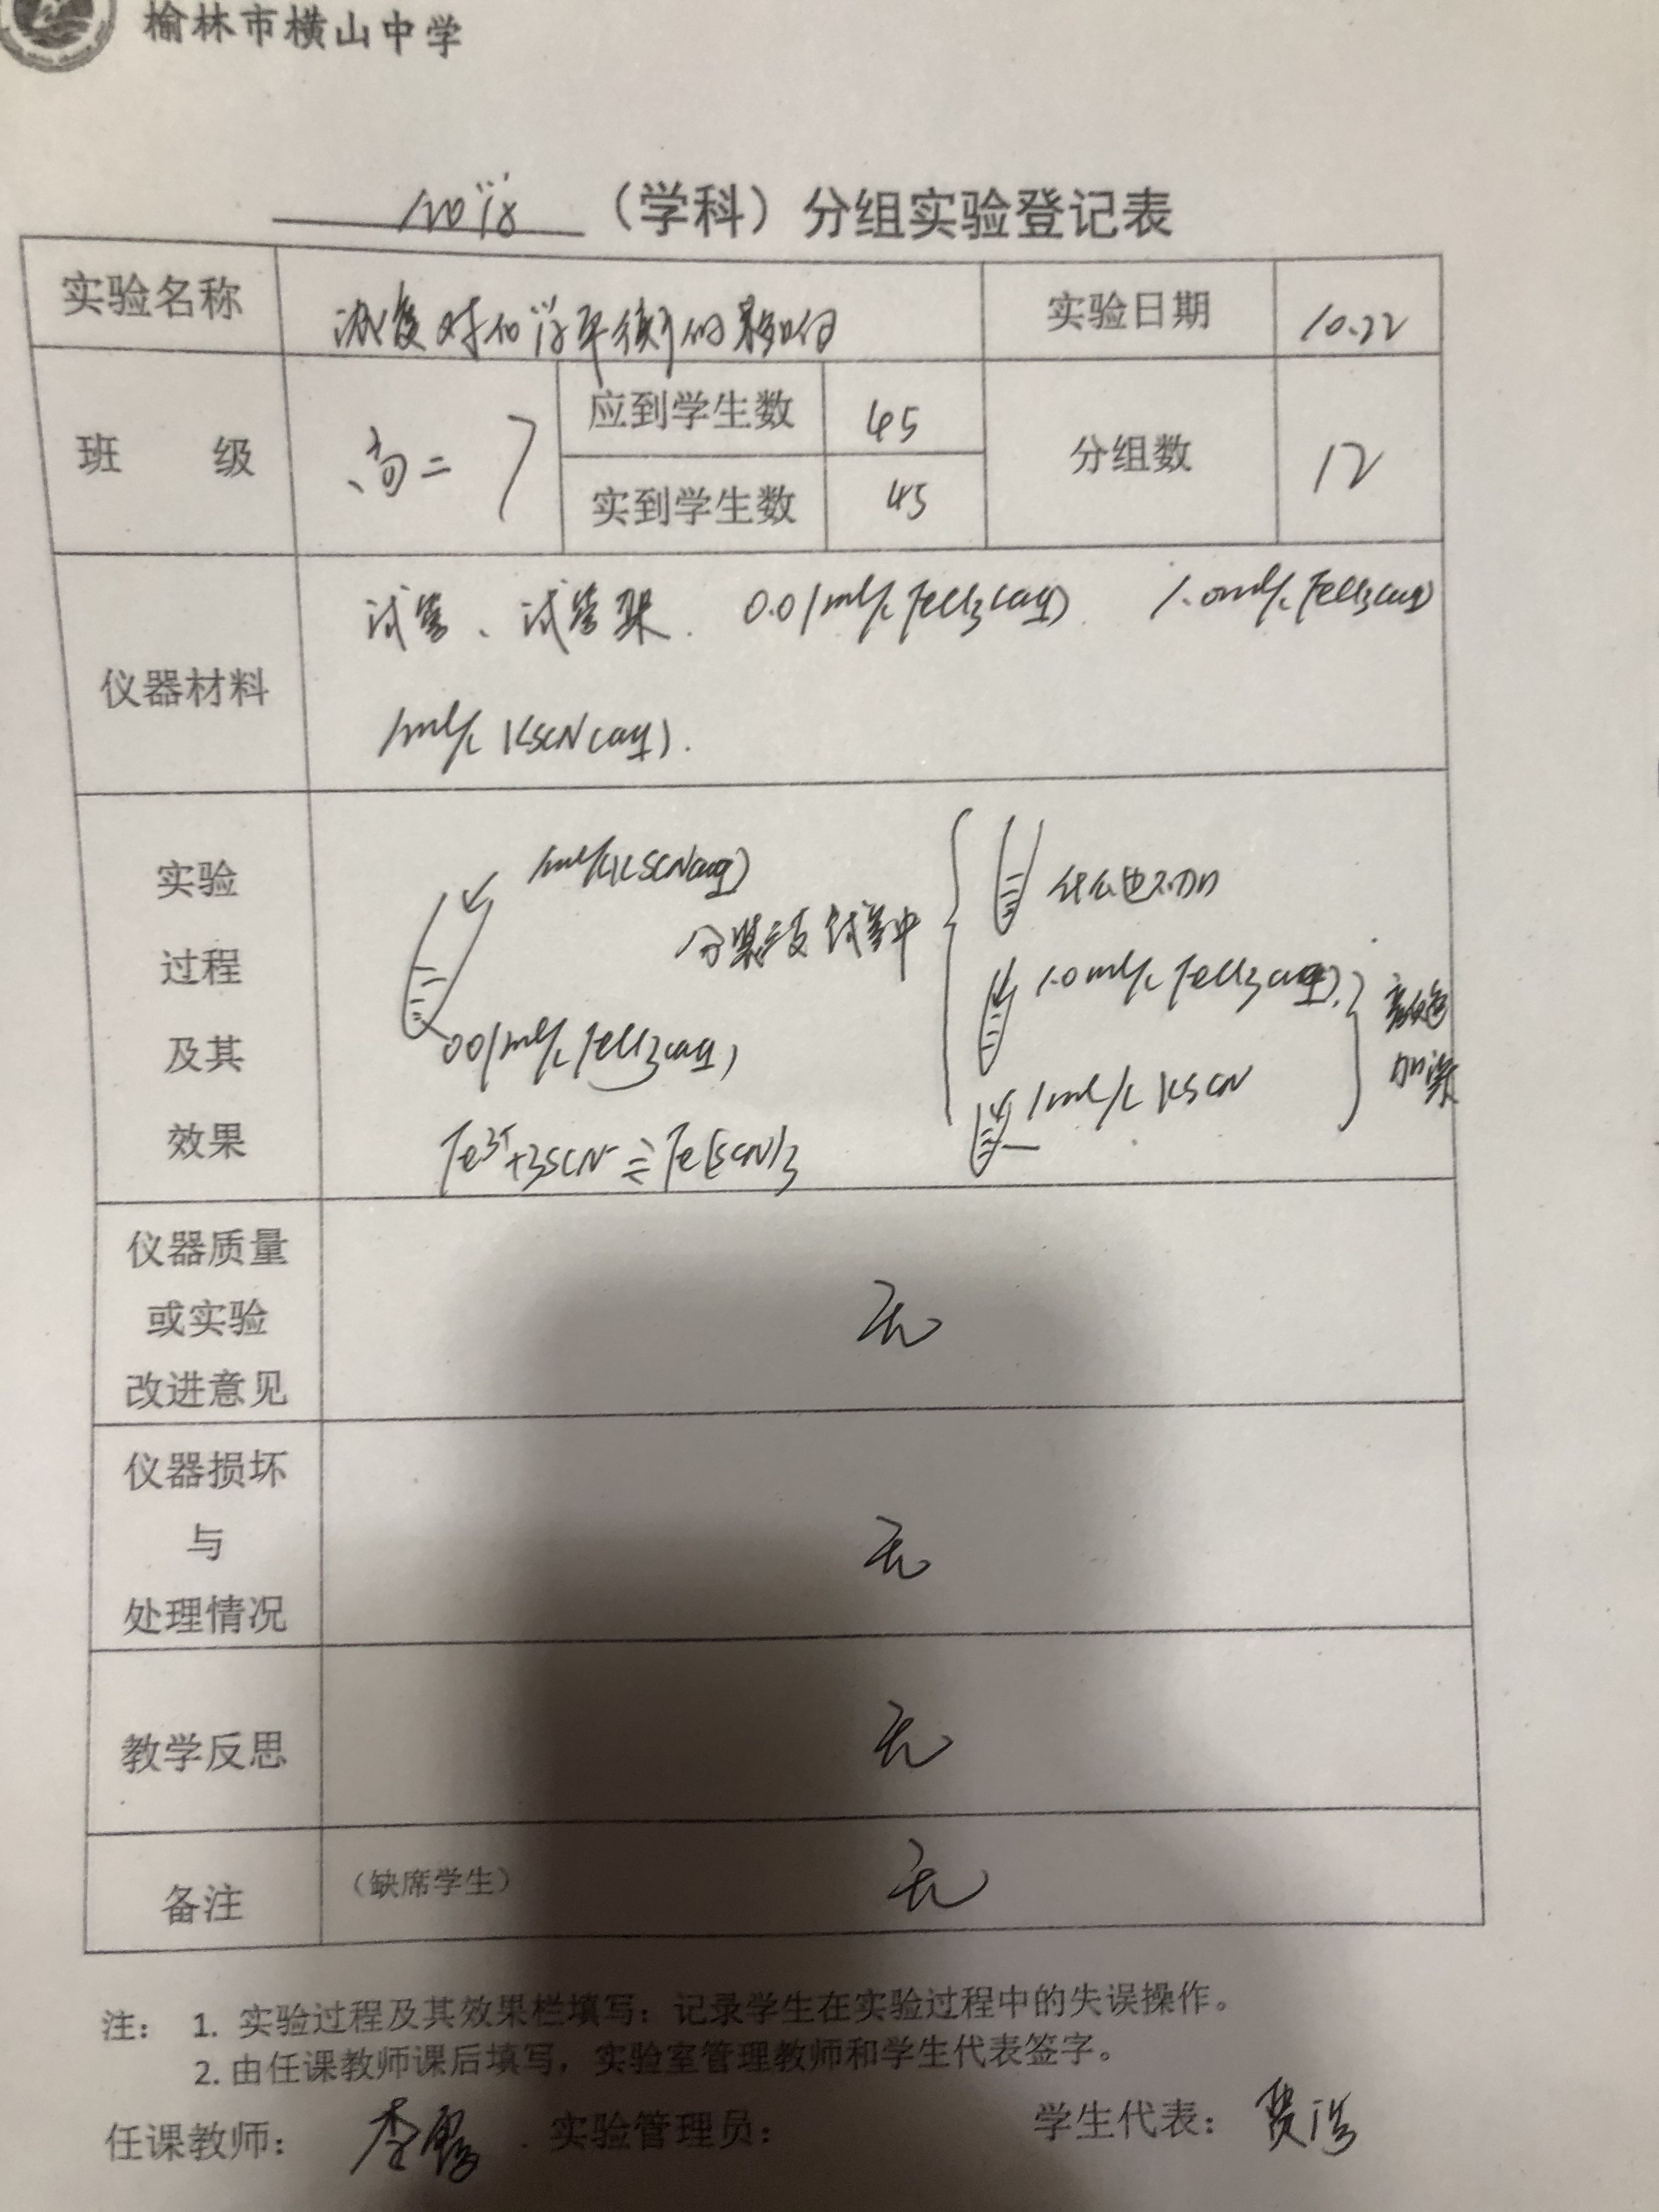 榆林市横山中学
化学 (学科) 分组实验登记表
实验名称 浓度对化学平衡的影响 实验日期 10.22
班 级 高二 7 应到学生数 45 分组数 12
实到学生数 45
仪器材料 试管、试管架. 0.01mol/L FeCl3(aq). 1.0mol/L FeCl3(aq)
1mol/L KSCN(aq).
实验
过程
及其
效果
1mol/L KSCN(aq)
0.01mol/L FeCl3(aq)
Fe3+ + 3SCN- ⇌ Fe(SCN)3
分装三支试管中
什么也不加
1.0mol/L FeCl3(aq).
1mol/L KSCN
颜色
加深
仪器质量
或实验
改进意见
无
仪器损坏
与
处理情况
无
教学反思 无
备注 (缺席学生) 无
注: 1. 实验过程及其效果栏填写:记录学生在实验过程中的失误操作。
2. 由任课教师课后填写,实验室管理教师和学生代表签字。
任课教师: 李 实验管理员: 学生代表: